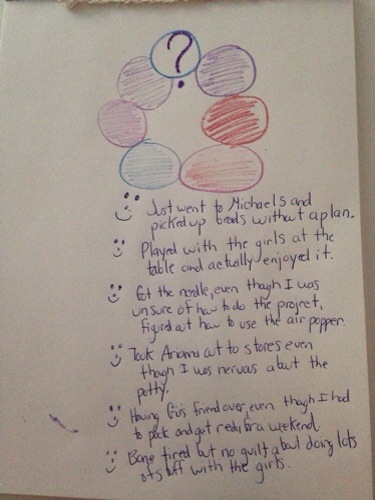 ?
Just went to Michaels and
picked up beads without a plan.
Played with the girls at the
table and actually enjoyed it.
Got the needle, even though I was
unsure of how to do the project,
figurd out how to use the air popper.
Took Arianna out to stores even
though I was nervous about the
potty.
Having Gus friend over, even though I had
to pack and get redi for a weekend
Bone tired but no guilt about doing lots
of stuff with the girls.